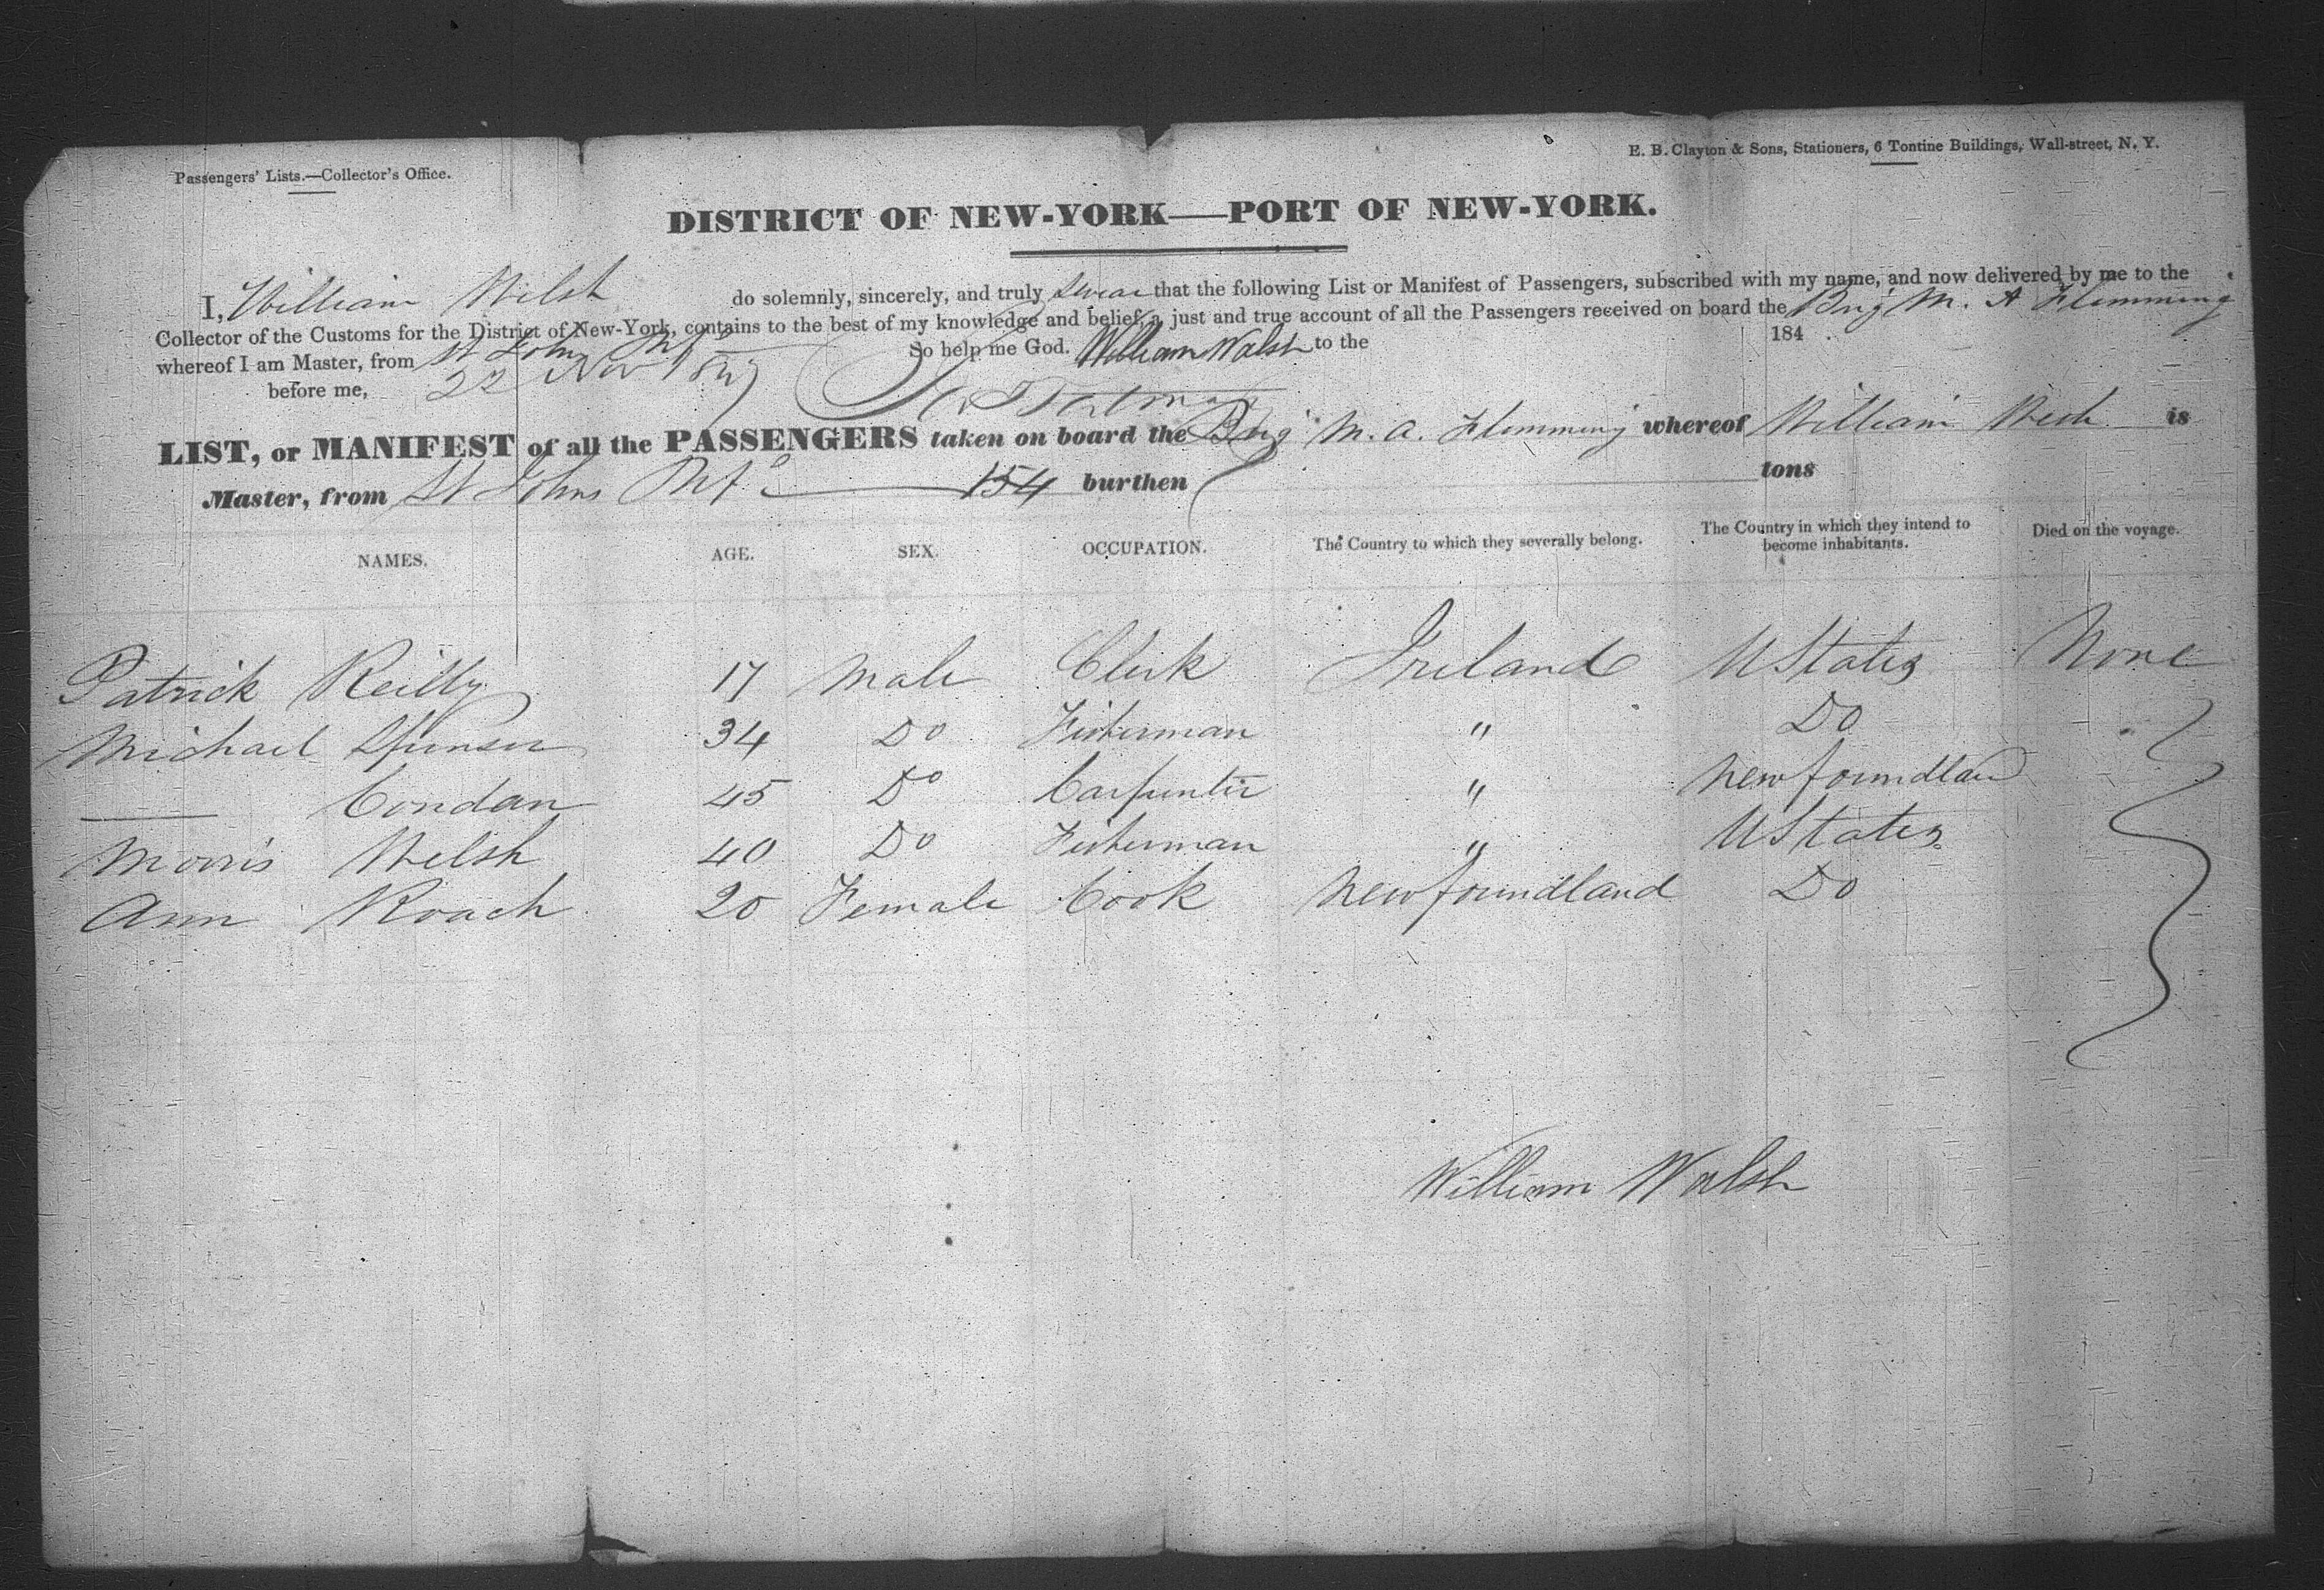 Passengers' Lists.—Collector's Office.
E. B. Clayton & Sons, Stationers, 6 Tontine Buildings, Wall-street, N. Y.
DISTRICT OF NEW-YORK—PORT OF NEW-YORK.
I, William Welsh do solemnly, sincerely, and truly swear that the following List or Manifest of Passengers, subscribed with my name, and now delivered by me to the
Collector of the Customs for the District of New-York, contains to the best of my knowledge and belief, a just and true account of all the Passengers received on board the Brig M. A Flemming
whereof I am Master, from St Johns Nfd So help me God. William Walsh to the 184
before me, 22 Nov 1847
LIST, or MANIFEST of all the PASSENGERS taken on board the Brig M. A. Flemming whereof William Welsh is
Master, from St Johns Nfd 154 burthen tons
NAMES. AGE. SEX. OCCUPATION. The Country to which they severally belong. The Country in which they intend to become inhabitants. Died on the voyage.
Patrick Reilly 17 Male Clerk Ireland U States None
Michael Spenser 34 Do Fisherman " Do
—— Condan 45 Do Carpenter " Newfoundland
Morris Welsh 40 Do Fisherman " U States
Ann Roach 20 Female Cook Newfoundland Do
William Walsh